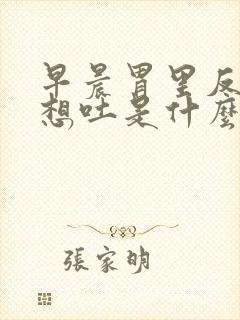 早晨胃里反
想吐是什麼
張家明